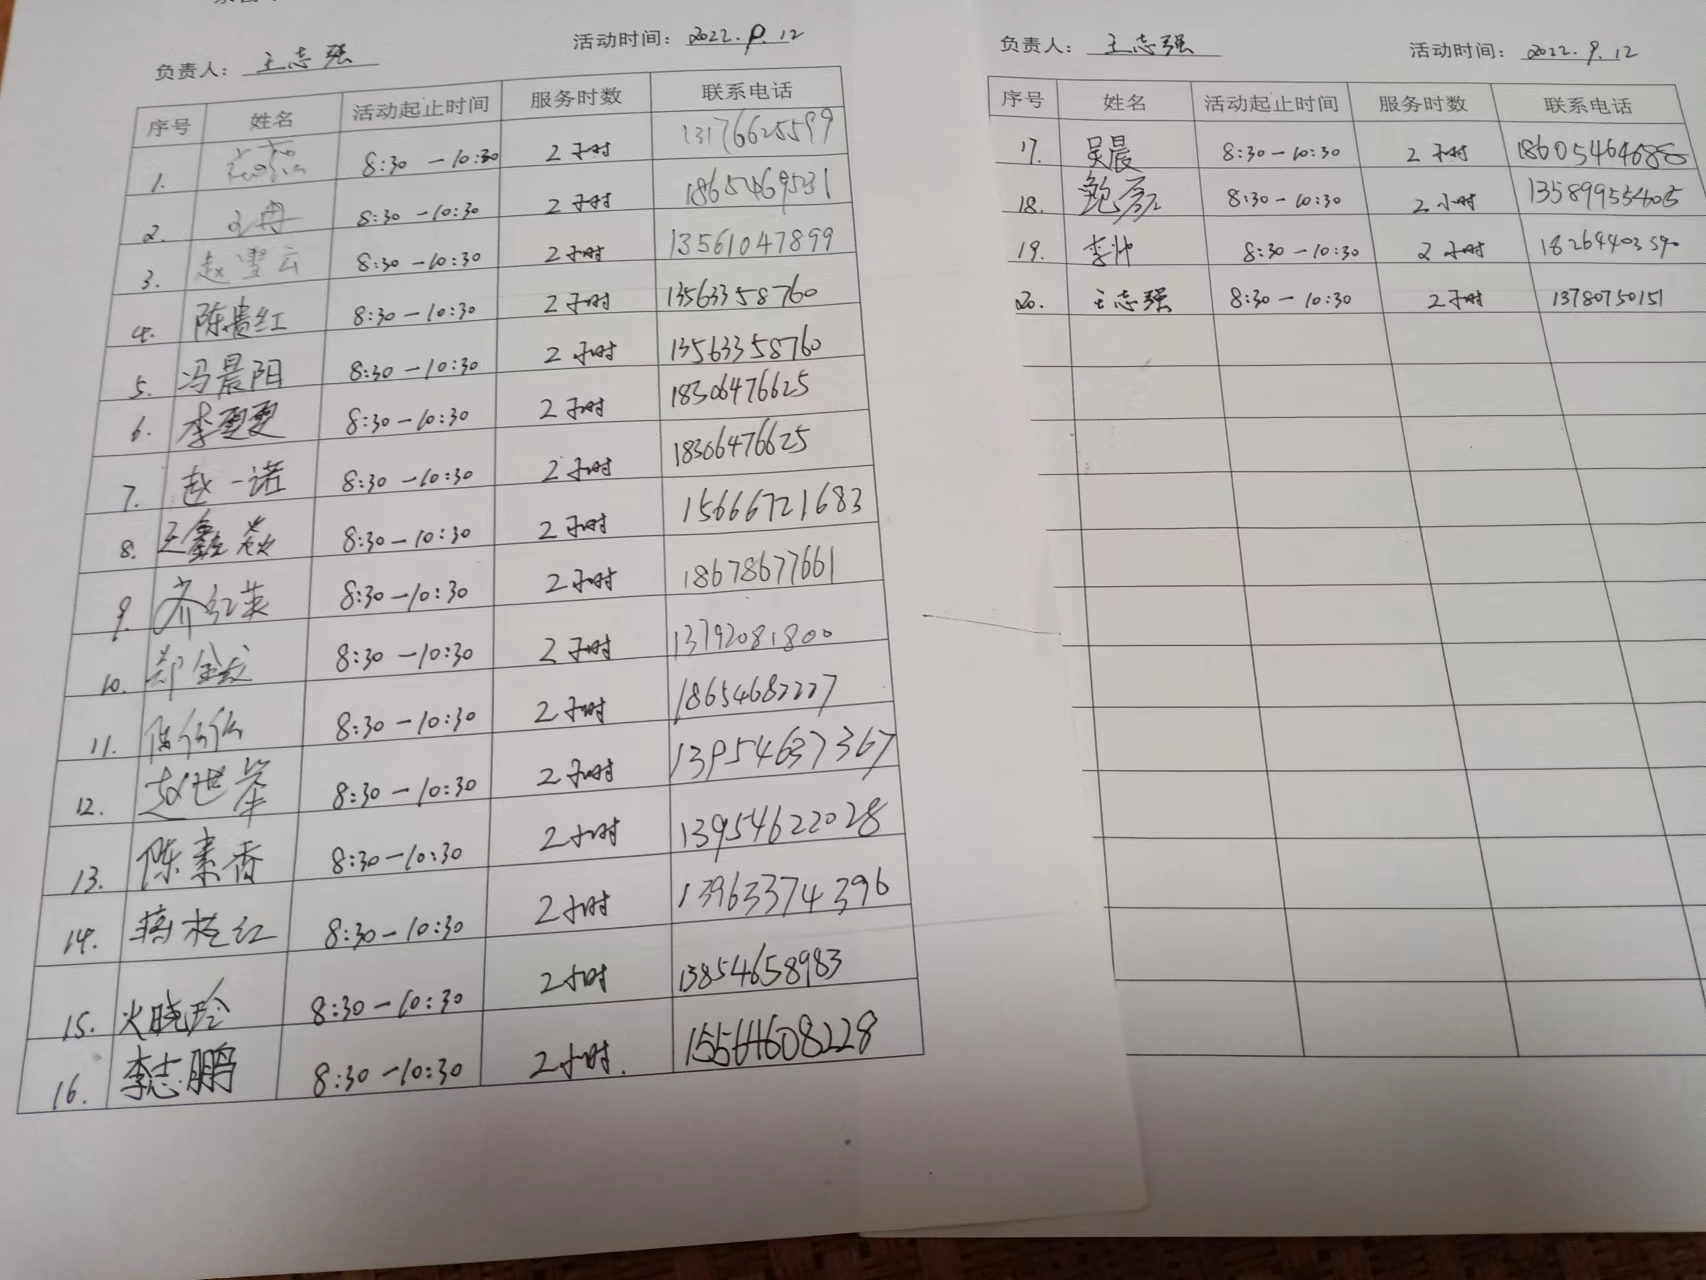 负责人： 王志强 活动时间： 2022.9.12
序号 姓名 活动起止时间 服务时数 联系电话
1. 8:30-10:30 2小时 13176625599
2. 8:30-10:30 2小时 18654695331
3. 赵雪云 8:30-10:30 2小时 13561047899
4. 陈贵红 8:30-10:30 2小时 13563358760
5. 冯晨阳 8:30-10:30 2小时 13563358760
6. 李更更 8:30-10:30 2小时 18306476625
7. 赵一诺 8:30-10:30 2小时 18306476625
8. 王鑫焱 8:30-10:30 2小时 15666721683
9. 齐红英 8:30-10:30 2小时 18678677661
10. 8:30-10:30 2小时 13792081800
11. 8:30-10:30 2小时 18654682227
12. 赵世举 8:30-10:30 2小时 13954637367
13. 陈素香 8:30-10:30 2小时 13954622028
14. 蒋桂红 8:30-10:30 2小时 13963374396
15. 火晓玲 8:30-10:30 2小时 13854658983
16. 李志鹏 8:30-10:30 2小时. 15564608228
负责人： 王志强 活动时间： 2022.9.12
序号 姓名 活动起止时间 服务时数 联系电话
17. 吴晨 8:30-10:30 2小时 18605464688
18. 鲍彦 8:30-10:30 2小时
19. 李帅 8:30-10:30 2小时 18264403590
20. 王志强 8:30-10:30 2小时 13780750151